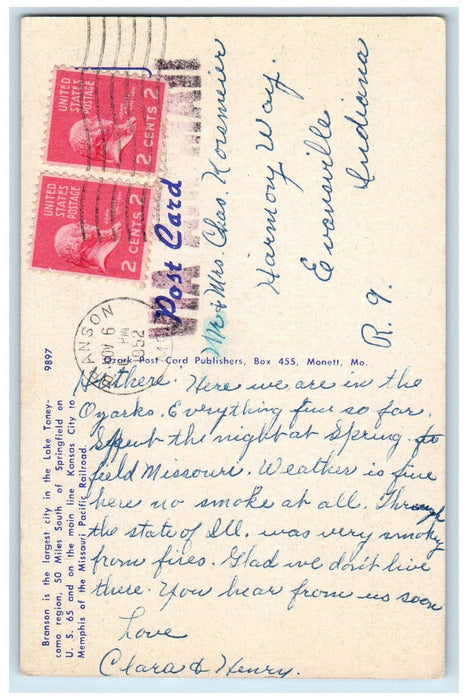 UNITED
STATES
POSTAGE
2 CENTS 2
UNITED
STATES
POSTAGE
2 CENTS 2
BRANSON
NOV 6
PM
1952
MO.
Post Card
Mr & Mrs. Chas. Korsmeier
Harmony Way.
Evansville
Indiana
R. 9.
Ozark Post Card Publishers, Box 455, Monett, Mo.
9897
Branson is the largest city in the Lake Taney-
como region, 50 Miles South of Springfield on
U. S. 65 and on the main line Kansas City to
Memphis of the Missouri Pacific Railroad.
Hi there. Here we are in the
Ozarks. Everything fine so far.
Spent the night at Spring-
field Missouri. Weather is fine
here no smoke at all. Through
the state of Ill. was very smoky
from fires. Glad we don't live
there. You hear from us soon
Love
Clara & Henry.